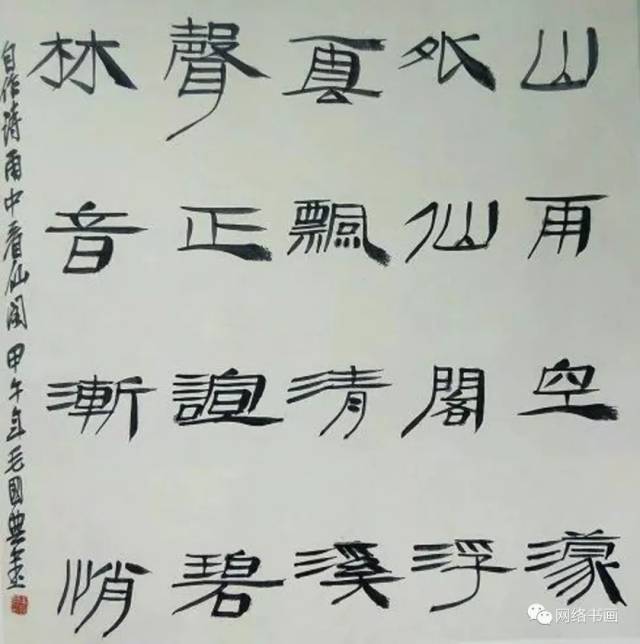 山雨空濛
外仙閣浮
真飄清溪
聲正諠碧
林音漸悄
自作詩雨中看仙閣 甲午年毛國典書
网络书画